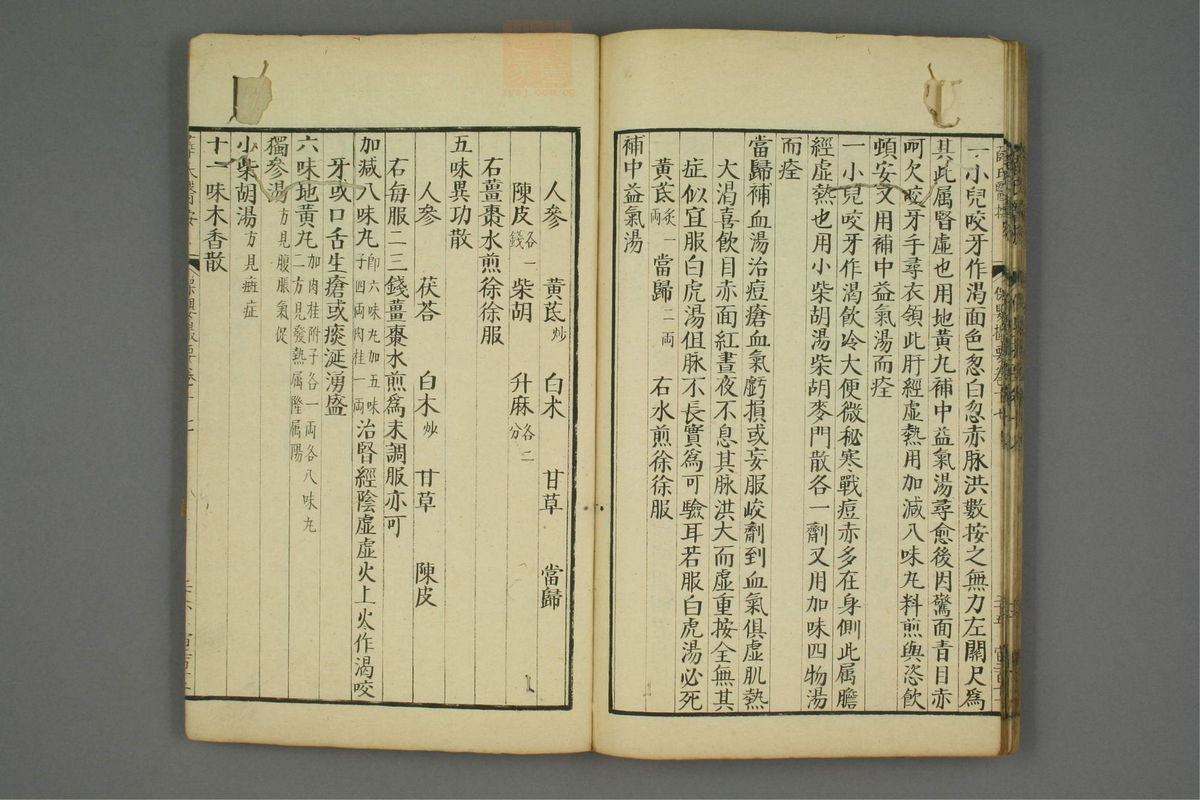 一小兒咬牙作渴面色忽白忽赤脉洪數按之無力左關尺爲
其此属腎虚也用地黄丸補中益氣湯尋愈後因驚面青目赤
呵欠咬牙手尋衣領此肝經虚熱用加减八味丸料煎與恣飲
頓安又用補中益氣湯而痊
一小兒咬牙作渴飲冷大便微秘寒戰痘赤多在身側此属膽
經虚熱也用小柴胡湯柴胡麥門散各一劑又用加味四物湯
而痊
當歸補血湯治痘瘡血氣虧損或妄服峻劑到血氣俱虚肌熱
大渴喜飲目赤面紅晝夜不息其脉洪大而虚重按全無其
症似宜服白虎湯但脉不長實爲可驗耳若服白虎湯必死
黄茋炙一兩 當歸二兩 右水煎徐徐服
補中益氣湯
人參 黄茋炒 白术 甘草 當歸
陳皮各一錢 柴胡 升麻各二分
右薑棗水煎徐徐服
五味異功散
人參 茯苓 白术炒 甘草 陳皮
右每服二三錢薑棗水煎爲末調服亦可
加减八味丸即六味丸加五味子四兩肉桂一兩治腎經陰虚虚火上炎作渴咬
牙或口舌生瘡或痰涎湧盛
六味地黄丸加肉桂附子各一兩各八味丸二方見發熱属隂属陽
獨參湯方見腹脹氣促
小柴胡湯方見癍症
十一味木香散